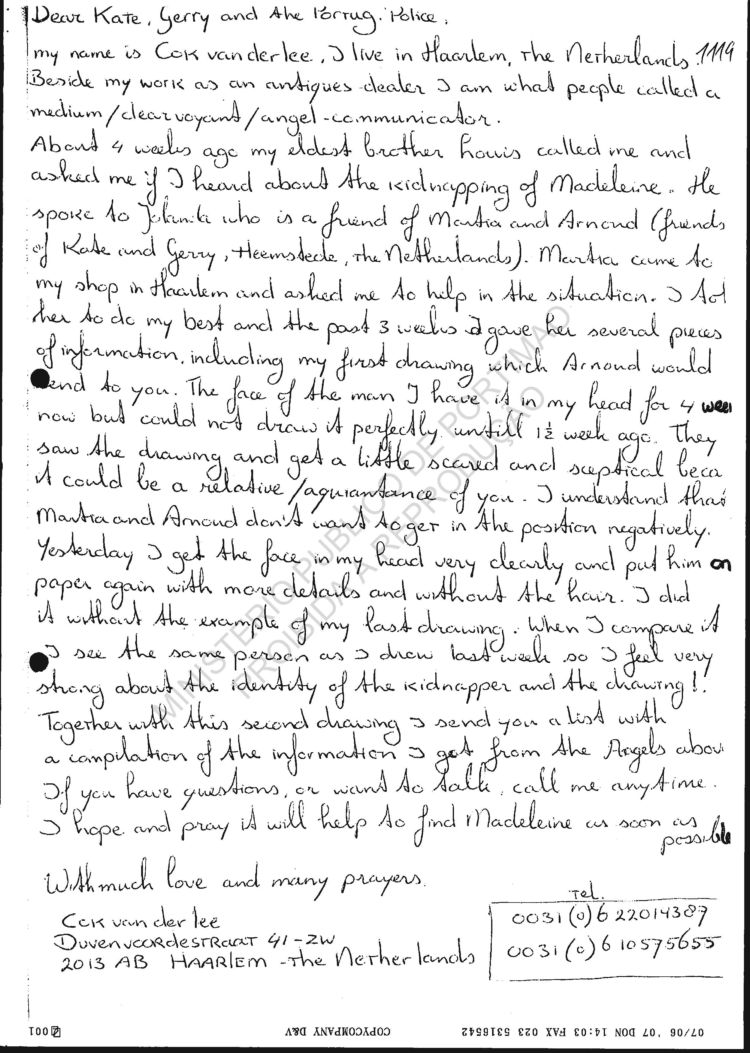 Dear Kate, Gerry and the Portug. Police,
my name is Cok van der lee, I live in Haarlem, the Netherlands. 1119
Beside my work as an antiques-dealer I am what people called a
medium/clearvoyant/angel-communicator.
About 4 weeks ago my eldest brother Louis called me and
asked me if I heard about the kidnapping of Madeleine. He
spoke to who is a friend of Martra and Arnoud (friends
of Kate and Gerry, Heemstede, the Netherlands). Martra came to
my shop in Haarlem and asked me to help in the situation. I tol
her to do my best and the past 3 weeks I gave her several pieces
of information, including my first drawing which Arnoud would
send to you. The face of the man I have it in my head for 4 week
now but could not draw it perfectly untill 1½ week ago. They
saw the drawing and get a little scared and sceptical beca
it could be a relative/aquiantance of you. I understand that
Martra and Arnoud don't want to get in the position negatively.
Yesterday I get the face in my head very clearly and put him on
paper again with more details and without the hair. I did
it without the example of my last drawing. When I compare it
I see the same person as I drew last week so I feel very
strong about the identity of the kidnapper and the drawing!.
Together with this second drawing I send you a list with
a compilation of the information I get from the Angels abou
If you have questions, or want to talk, call me anytime.
I hope and pray it will help to find Madeleine as soon as
possible
With much love and many prayers.
Cok van der lee
Duvenvoordestraat 41-zw
2013 AB HAARLEM - The Netherlands
Tel.
0031(0)6 22014387
0031(0)6 10575655
MINISTÉRIO PÚBLICO DE PORTIMÃO
PROIBIDA A REPRODUÇÃO
07/06 '07 DON 14:03 FAX 023 5316542 COPYCOMPANY D&V 001